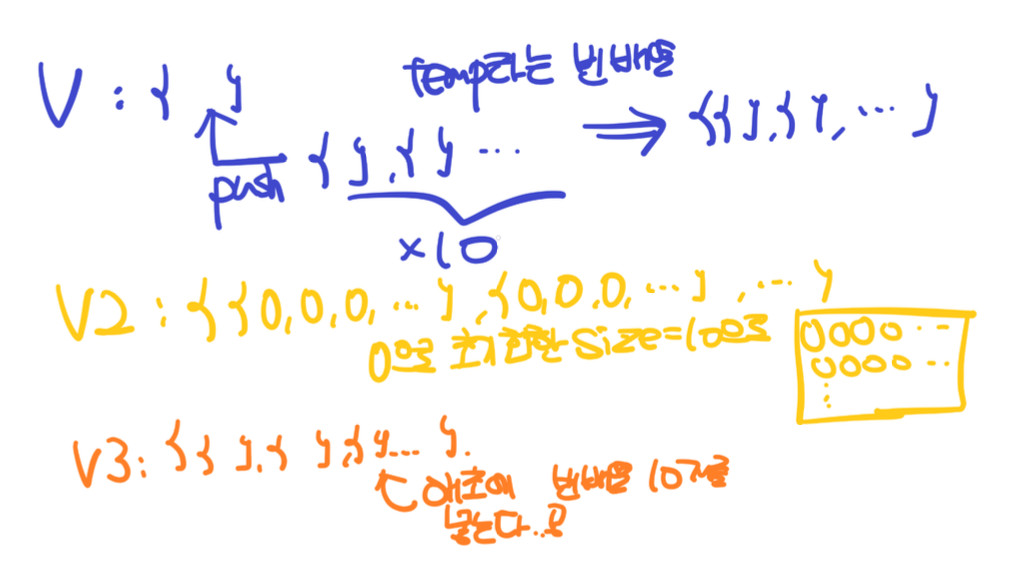 V : { } temp라는 빈배열
push { }, { } ... ⇒ {{ }, { }, ... }
×10
V2 : { {0,0,0, ...}, {0,0,0, ...} , ... }
0으로 초기화한 size=10으로
0000 ...
0000 ...
:
V3 : { { }, { }, { } ... }.
애초에 빈배열 10개를
넣는다..요